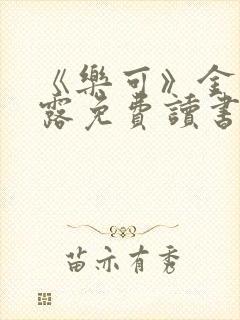 《樂可》金
露免費讀書
苗亦有秀